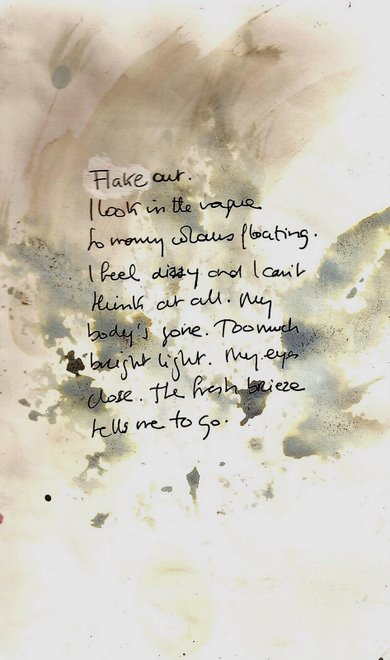 Flake out.
I look in the vague
So many colours floating.
I feel dizzy and I can't
think at all. My
body's gone. Too much
bright light. My eyes
close. The fresh brieze
tells me to go.